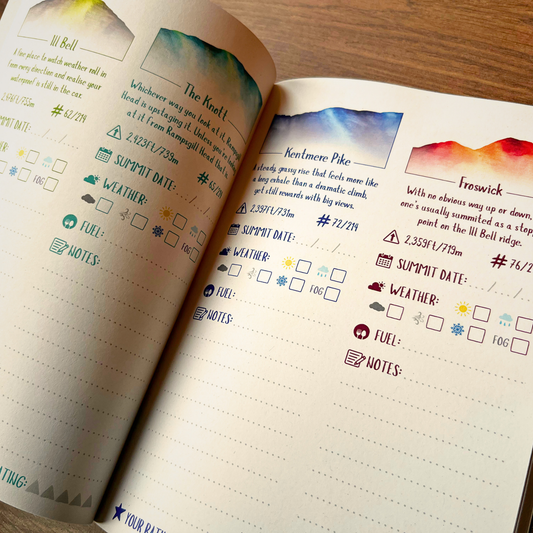 Ill Bell
A fine place to watch weather roll in
from every direction and realise your
waterproof is still in the car.
# 62/214
DATE:
FOG
The Knott
Whichever way you look at it, Rampsgill
Head is upstaging it. Unless you
at it from Rampsgill Head that is.
2,423FT/739m
# 65/214
SUMMIT DATE:
WEATHER:
FOG
FUEL:
NOTES:
Kentmere Pike
steady, grassy rise that feels more like
a long exhale than a dramatic climb,
yet still rewards with big views.
2,397FT/731m
# 72/214
SUMMIT DATE:
WEATHER:
FOG
FUEL:
NOTES:
Froswick
With no obvious way up or down,
one's usually summited as a stop
point on the Ill Bell ridge.
2,359FT/719m
# 76/2
SUMMIT DATE:
WEATHER:
FOG
FUEL:
NOTES:
ATING:
YOUR RATI